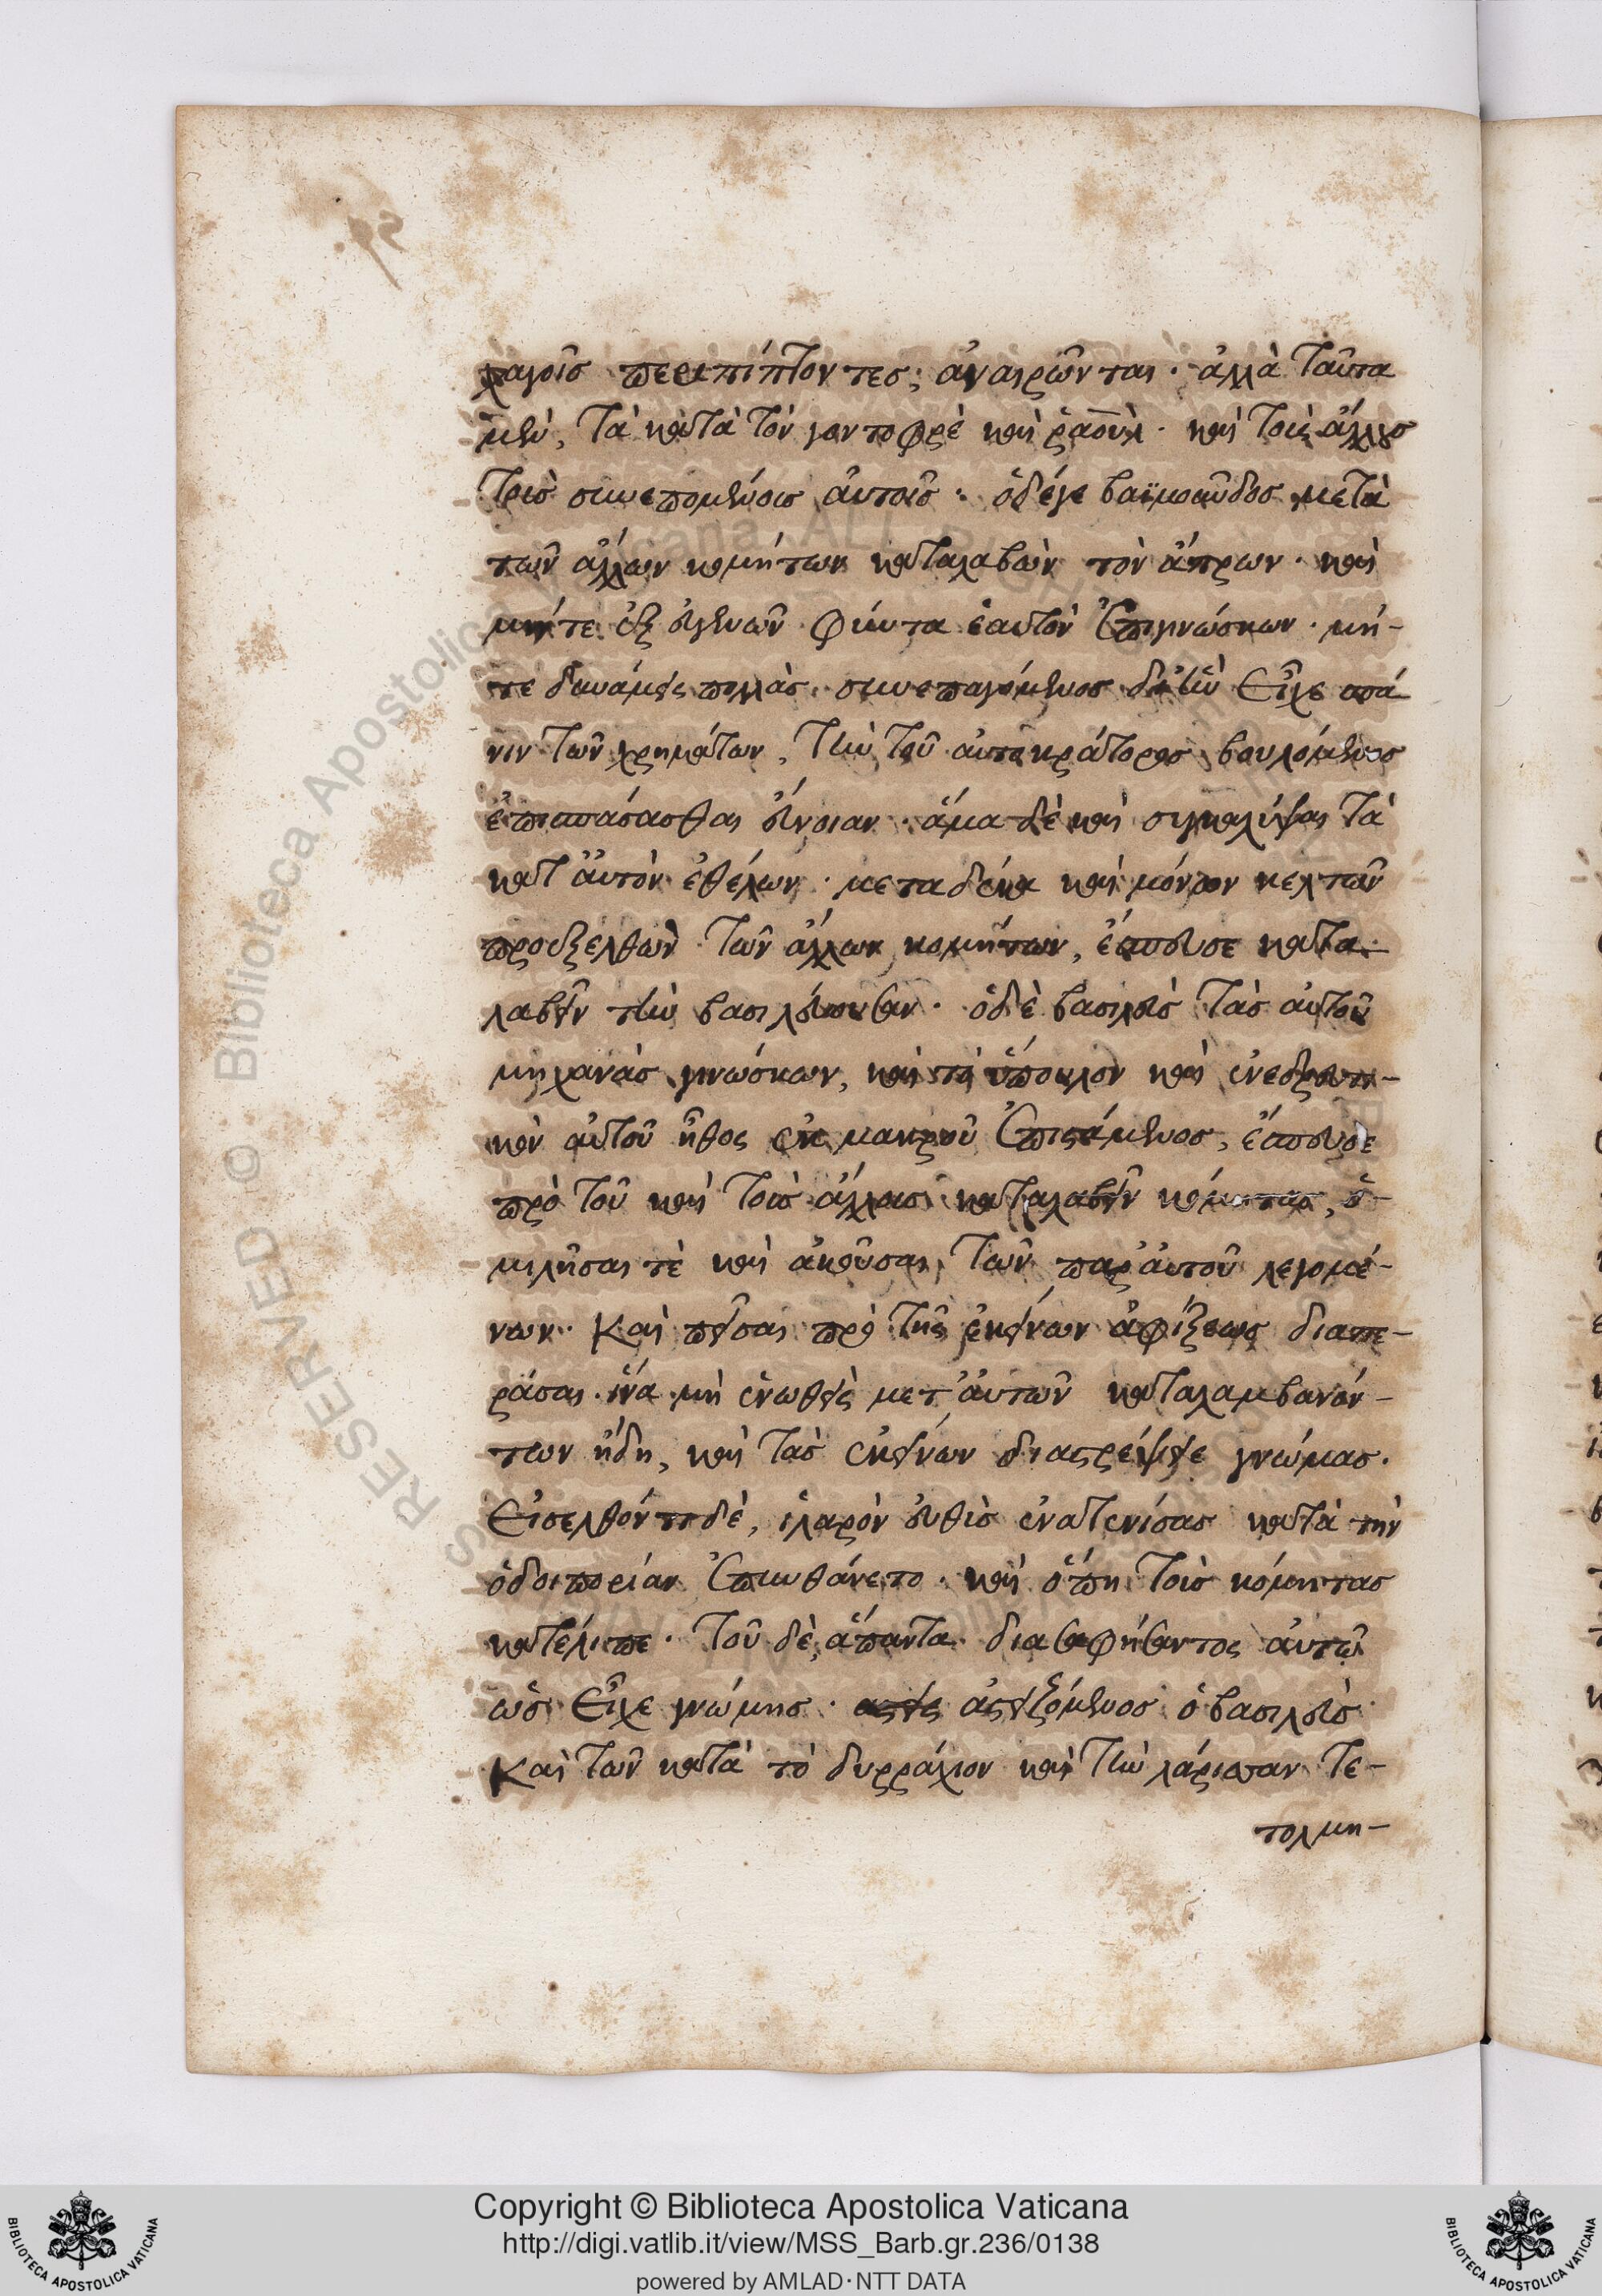 παγοῖσ περιπίπτοντες; ἀναιρῶνται· ἀλλὰ ταῦτα
μὲν, τὰ κατὰ τὸν γοντοφρὲ καὶ ῥαοὺλ· καὶ τοὺς ἄλλους
τοὺσ συνεπομένους αὐτοῖσ· ὁ δέγε βαϊμοῦνδοσ μετὰ
τῶν ἄλλων κομήτων καταλαβὼν τὸν ἄπρων· καὶ
μήτε ἐξ εὐγενῶν φύντα ἑαυτὸν ἐπιγινώσκων· μή-
τε δυνάμεις πολλὰσ συνεπαγόμενοσ δι' ἣν εἶχε σπά
νιν τῶν χρημάτων, τὴν τοῦ αὐτοκράτοροσ βουλόμενοσ
ἐπισπάσασθαι εὔνοιαν· ἅμα δὲ καὶ συγκαλύψαι τὰ
κατ αὐτὸν ἐθέλων· μετα δέκα καὶ μόνων κελτῶν
προεξελθὼν τῶν ἄλλων κομήτων, ἔσπευσε κατα
λαβεῖν τὴν βασιλεύουσαν· ὁ δὲ βασιλεὺσ τὰσ αὐτοῦ
μηχανὰσ γινώσκων, καὶ τὸ ὕπουλον καὶ ἐνεδρευτι-
κὸν αὐτοῦ ἦθος ἐκ μακροῦ ἐπιστάμενοσ, ἔσπευσε
πρὸ τοῦ καὶ τοὺσ ἄλλουσ καταλαβεῖν κόμητασ, ὁ-
μιλῆσαι τὲ καὶ ἀκοῦσαι τῶν παρ' αὐτοῦ λεγομέ-
νων· Καὶ πεῖσαι πρὸ τῆς ἐκείνων ἀφίξεως διαπε-
ράσαι· ἵνα μὴ ἑνωθεὶς μετ' αὐτῶν καταλαμβανόν-
των ἤδη, καὶ τὰσ ἐκείνων διαστρέψειε γνώμασ.
Εἰσελθόντι δὲ, ἱλαρὸν εὐθὺσ ἐνατενίσασ κατὰ τὴν
ὁδοιπορίαν ἐπυνθάνετο· καὶ ὅπη τοὺσ κόμητασ
κατέλιπε· Τοῦ δὲ, ἅπαντα διασαφήσαντος αὐτῶ
ὡσ εἶχε γνώμησ· ἀστεϊζόμενοσ ὁ βασιλεὺσ
Καὶ τῶν κατὰ τὸ δυρράχιον καὶ τὴν λάρισσαν τε-
τολμη-
Copyright © Biblioteca Apostolica Vaticana
http://digi.vatlib.it/view/MSS_Barb.gr.236/0138
powered by AMLAD·NTT DATA